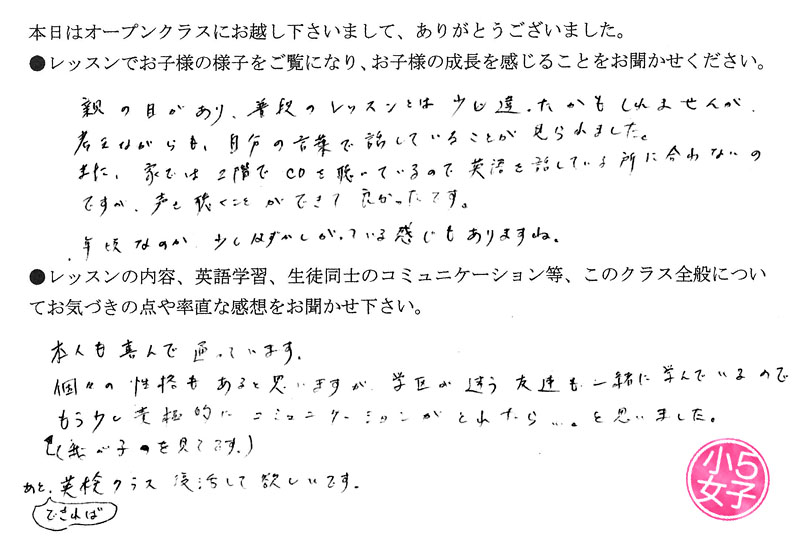 本日はオープンクラスにお越し下さいまして、ありがとうございました。
●レッスンでお子様の様子をご覧になり、お子様の成長を感じることをお聞かせください。
親の目があり、普段のレッスンとは少し違ったかもしれませんが、
考えながらも、自分の言葉で話していることが見られました。
また、家では2階でCDを聴いているので英語を話している所に合わないの
ですが、声を聴くことができて良かったです。
年頃なのか、少しはずかしがっている感じもありますね。
●レッスンの内容、英語学習、生徒同士のコミュニケーション等、このクラス全般につい
てお気づきの点や率直な感想をお聞かせ下さい。
本人も喜んで通っています。
個々の性格もあると思いますが、学区が違う友達も一緒に学んでいるので
もう少し積極的にコミュニケーションがとれたら…。と思いました。
(我が子を見てです。)
あと、英検クラス復活して欲しいです。
できれば
小5
女子